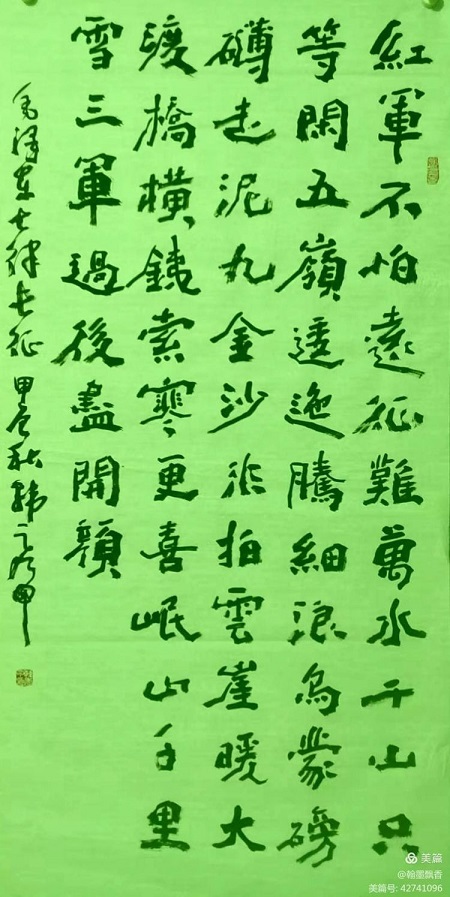 紅軍不怕遠征難萬水千山只
等閑五嶺逶迤騰細浪烏蒙磅
礴走泥丸金沙水拍雲崖暖大
渡橋橫鐵索寒更喜岷山千里
雪三軍過後盡開顏
毛澤東七律長征 甲辰秋韓
美篇
@翰墨飘香
美篇号: 42741096